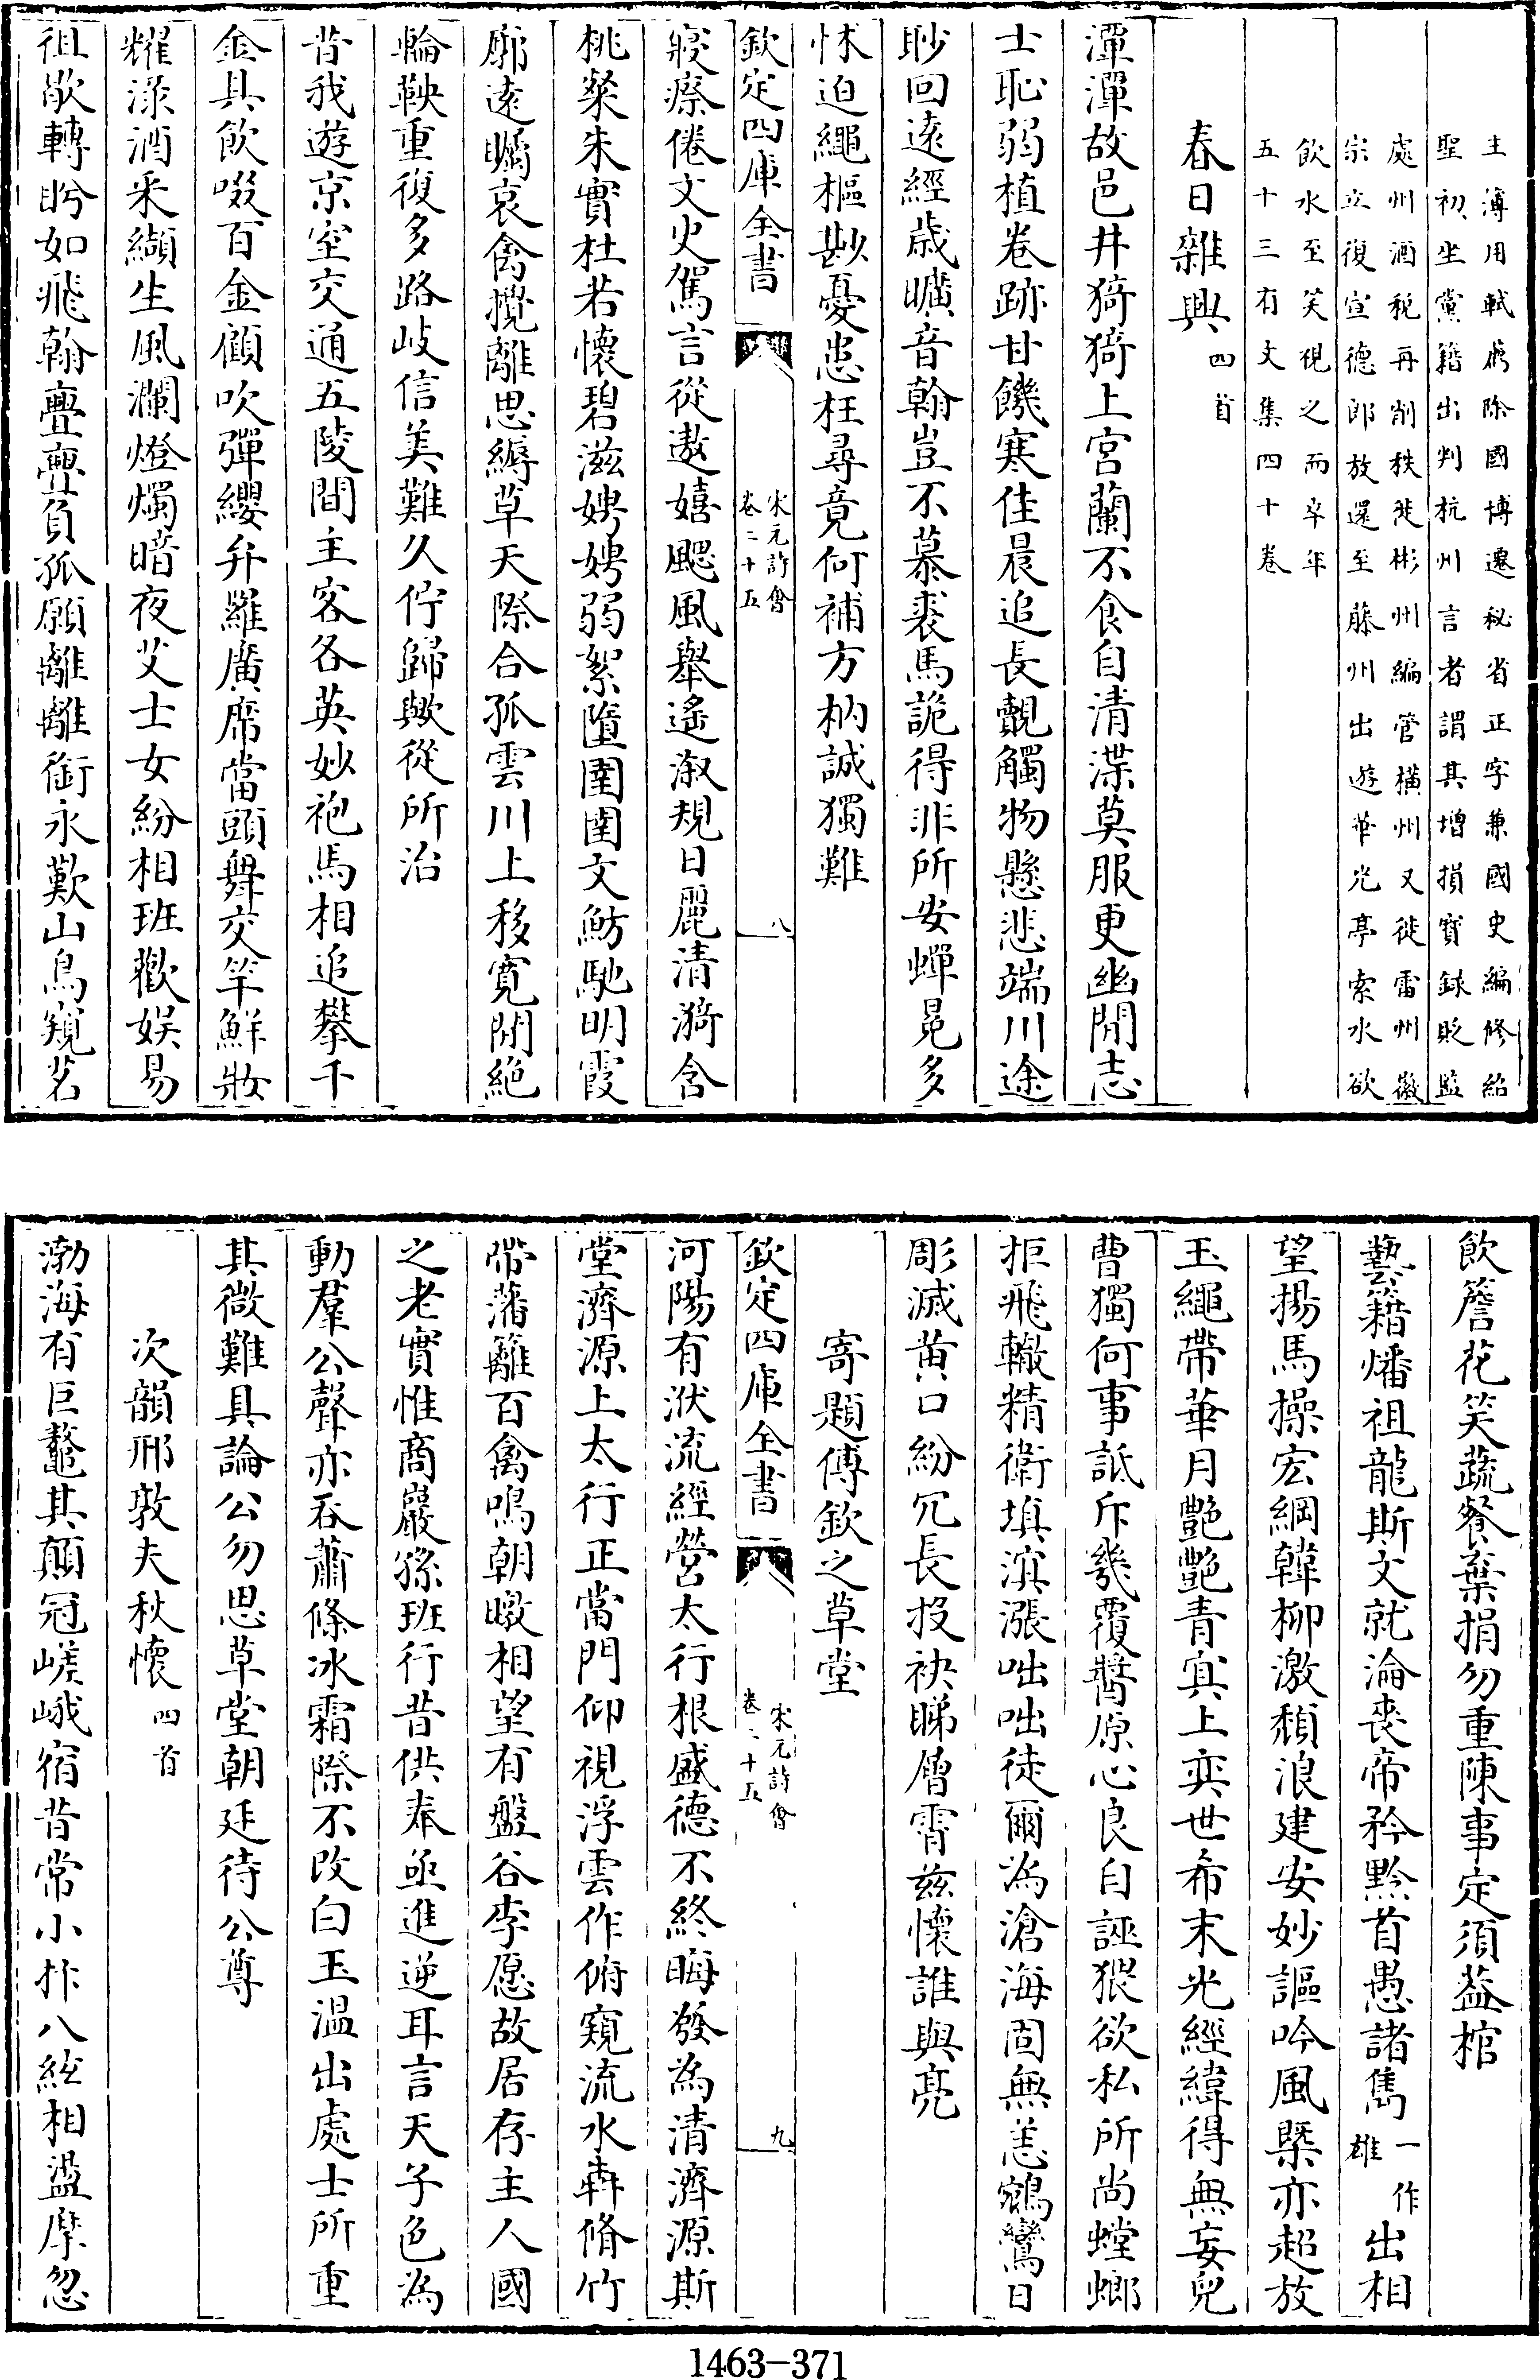 主簿用軾薦除國博遷秘省正字兼國史編修紹
聖初坐黨籍出判杭州言者謂其增損實録貶監
處州酒税再削秩徙彬州編管橫州又徙雷州徽
宗立復宣德郎放還至藤州出遊華光亭索水欲
飲水至笑視之而卒年
五十三有文集四十卷
春日雜興四首
潭潭故邑井猗猗上宮蘭不食自清渫莫服更幽閒志
士恥弱植卷跡甘饑寒佳晨追長覿觸物懸悲端川途
眇回遠經歲曠音翰豈不慕裘馬詭得非所安蟬冕多
怵迫繩樞尠憂患枉尋竟何補方枘誠獨難
欽定四庫全書
宋元詩會
卷二十五
八
寂瘵倦文史駕言從遨嬉颸風舉遙漵規日麗清漪含
桃粲朱實杜若懷碧滋娉娉弱絮墮圉圉文魴馳明霞
廓遠矚哀禽攪離思縟草天際合孤雲川上移寛閒絶
輪鞅重復多路岐信美難久佇歸歟從所治
昔我遊京室交通五陵間主客各英妙袍馬相追攀千
金具飲啜百金顧吹彈纓弁羅廣席當頭舞交竿鮮妝
耀淥酒采纈生風瀾燈燭暗夜艾士女紛相班歡娱易
徂歇轉眄如飛翰亹亹負孤願離離銜永歎山鳥窺茗
飲簷花笑蔬餐棄捐勿重陳事定須葢棺
藝籍燔祖龍斯文就淪喪帝矜黔首愚諸雋一作雄出相
望揚馬操宏綱韓柳激頹浪建安妙謳吟風槩亦超放
玉繩帶華月艷艷青寘上奕世希末光經緯得無妄兒
曹獨何事詆斥幾覆醬原心良自誣猥欲私所尚螳螂
拒飛轍精衛填滇漲咄咄徒爾為滄海固無恙鵷鸞日
彫減黄口紛冗長投袂睇層霄兹懷誰與亮
寄題傅欽之草堂
欽定四庫全書
宋元詩會
卷二十五
九
河陽有洑流經營太行根盛德不終晦發為清濟源斯
堂濟源上太行正當門仰視浮雲作俯窺流水犇脩竹
帶藩籬百禽鳴朝暾相望有盤谷李愿故居存主人國
之老實惟商巖孫班行昔供奉亟進逆耳言天子色為
動羣公聲亦吞蕭條冰霜際不改白玉温出處士所重
其微難具論公勿思草堂朝廷待公尊
次韻邢敦夫秋懷四首
渤海有巨鼇其顛冠嵯峨宿昔常小抃八紘相盪摩忽
1463-371